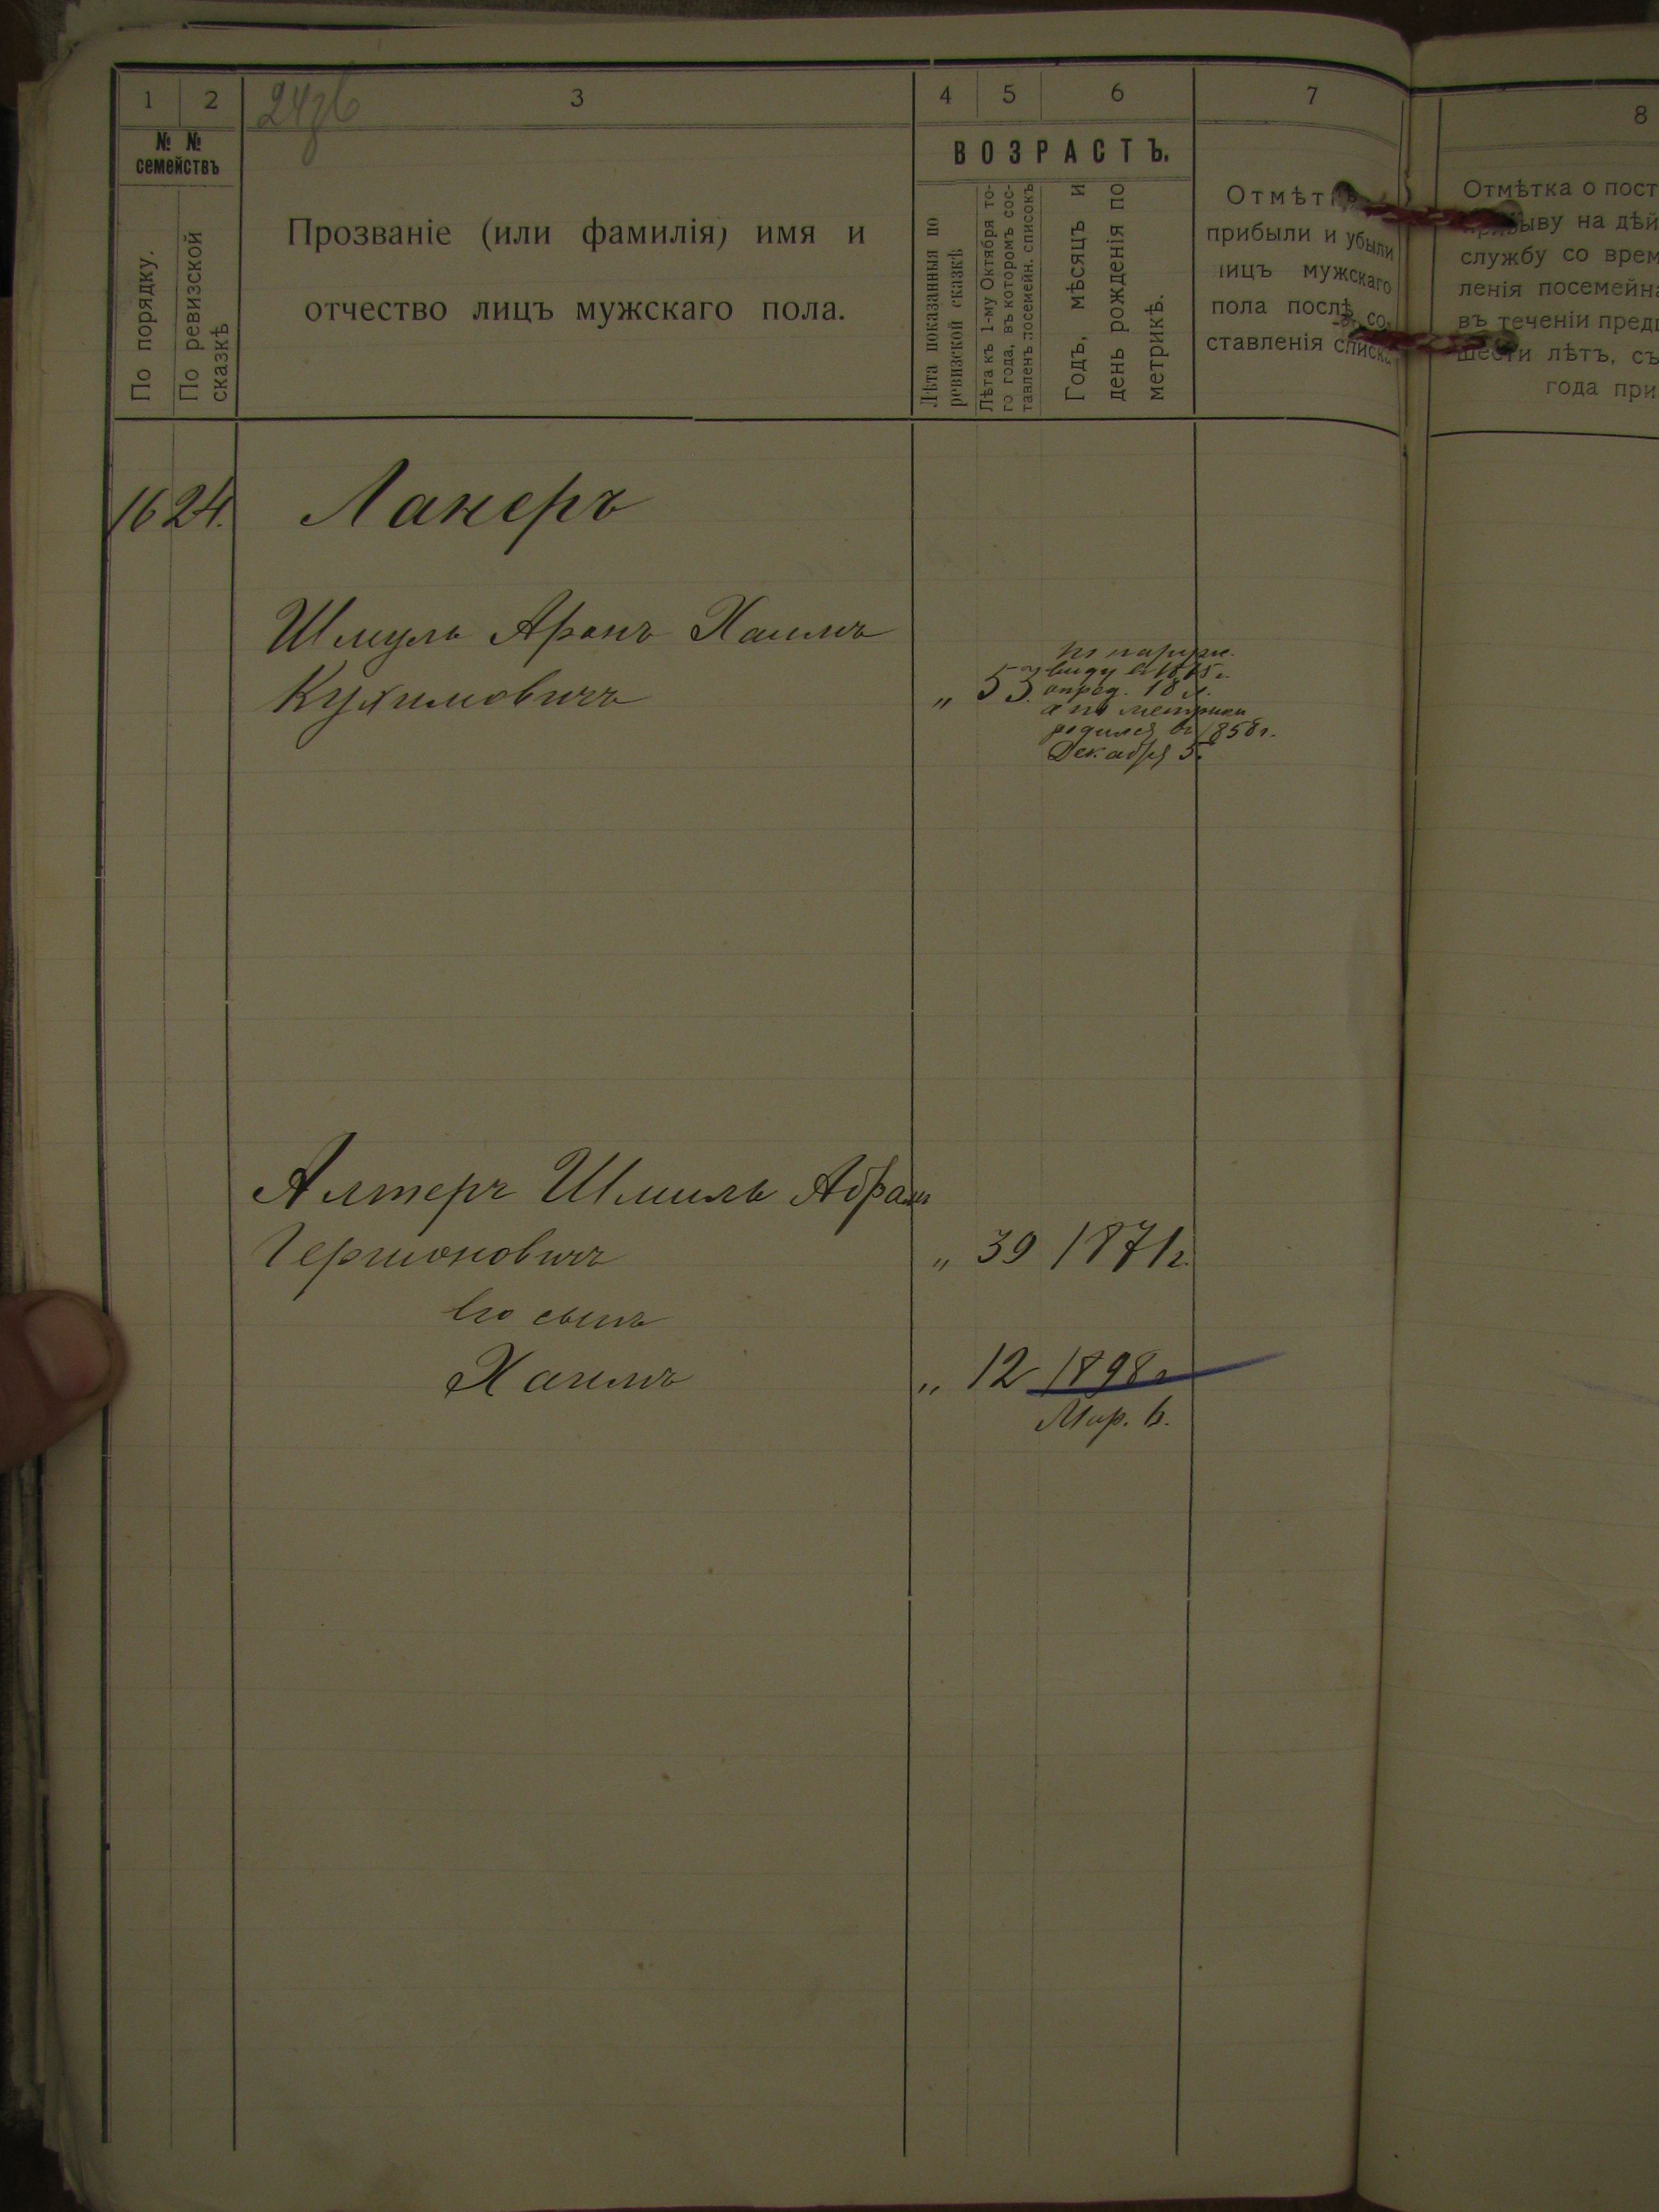 1 2 3 4 5 6 7
№ № семействъ
По порядку.
По ревизской сказкѣ
Прозваніе (или фамилія) имя и
отчество лицъ мужскаго пола.
ВОЗРАСТЪ.
Лѣта показанныя по
ревизской сказкѣ
Лѣта къ 1-му Октября то-
го года, въ которомъ сос-
тавленъ посемейн. списокъ
Годъ, мѣсяцъ и
день рожденія по
метрикѣ.
Отмѣтка
прибыли и убыли
лицъ мужскаго
пола послѣ со-
ставленія списка
8
Отмѣтка о пост
призыву на дѣй
службу со врем
ленія посемейна
въ теченіи пред
шести лѣтъ, съ
года при
1624. Ланеръ
Шмуль Аронъ Хаимъ
Кухимовичъ „ 53.
по наружн.
виду въ 1875 г.
опред. 18 л.
а по метрики
родился въ 1858 г.
Декабря 5.
Алтеръ Шмиль Абрамъ
Гершоновичъ „ 39 1871 г.
Его сынъ
Хаимъ „ 12 1898 г
Мар. 6.